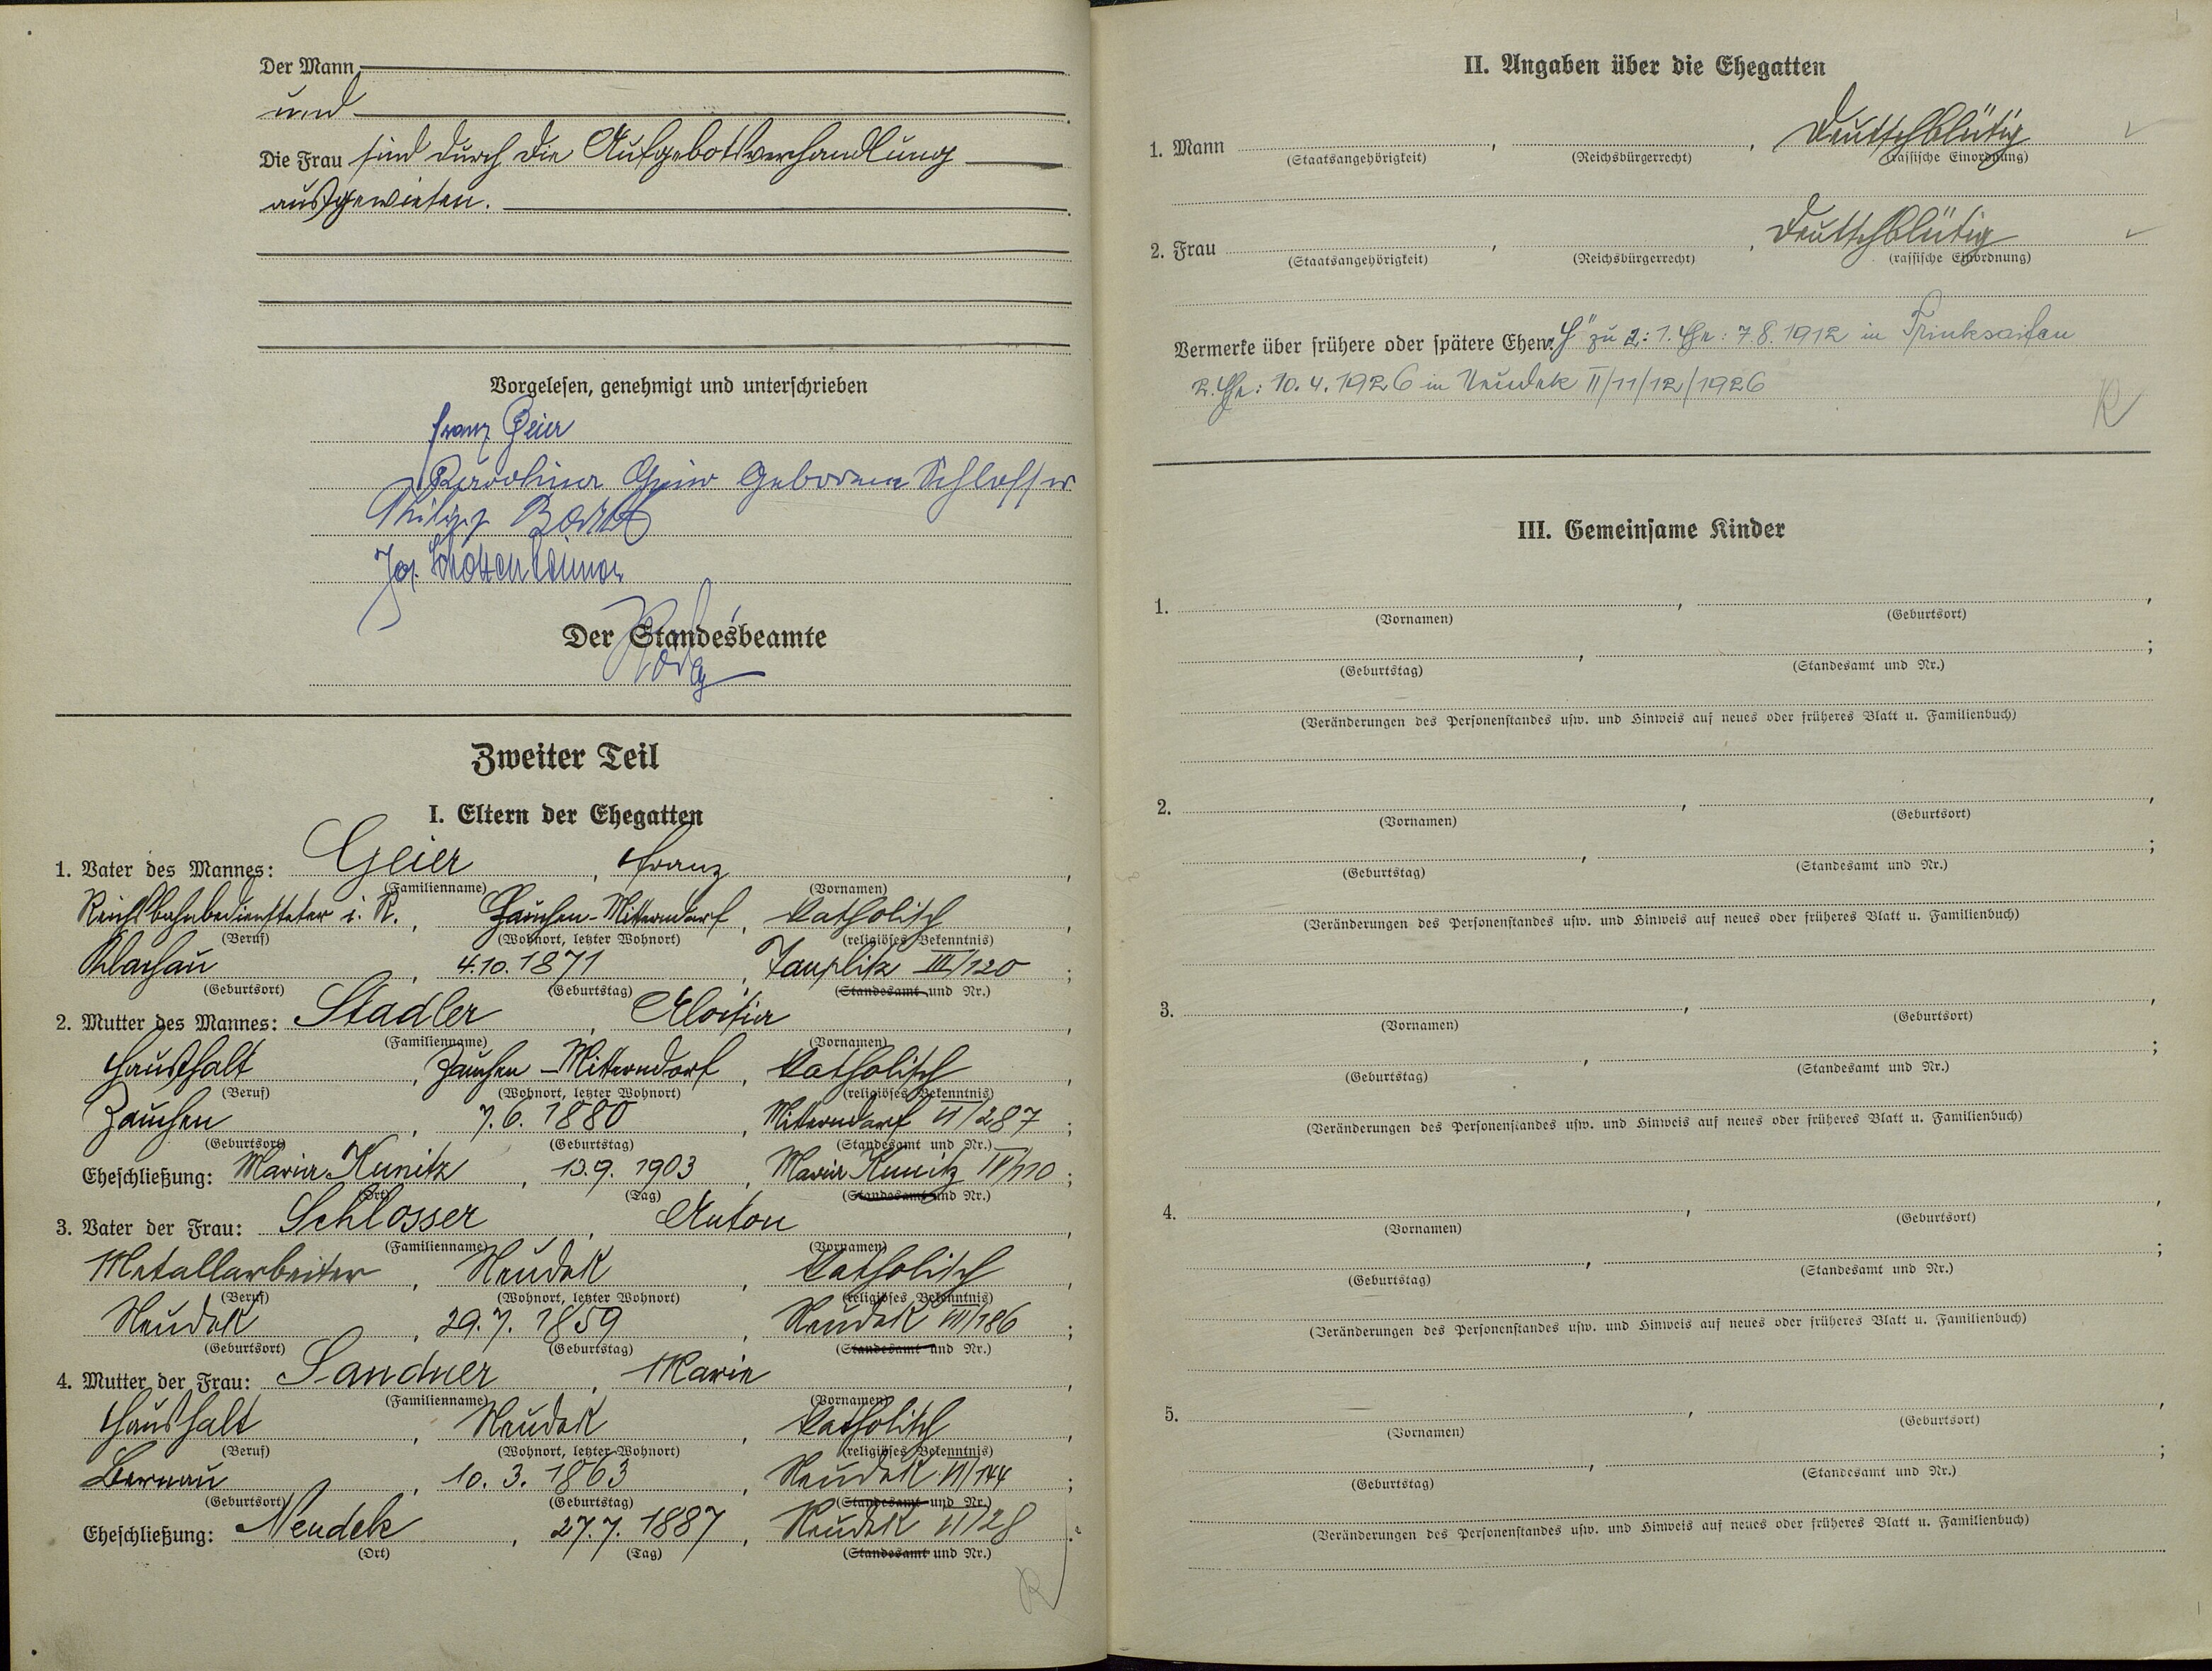 Der Mann
und
Die Frau sind durch die Aufgebotsverhandlung
ausgewiesen.
Vorgelesen, genehmigt und unterschrieben
Franz Geier
Karoline Geier geborene Schlosser
Philipp
Jos.
Der Standesbeamte
Zweiter Teil
I. Eltern der Ehegatten
1. Vater des Mannes: Geier, Franz,
(Familienname) (Vornamen)
Reichsbahnbediensteter i. R., Zauchen-Mitterndorf, katholisch,
(Beruf) (Wohnort, letzter Wohnort) (religiöses Bekenntnis)
Klachau, 4.10.1871, Tauplitz III/120;
(Geburtsort) (Geburtstag) (Standesamt und Nr.)
2. Mutter des Mannes: Stadler, Aloisia,
(Familienname) (Vornamen)
Haushalt, Zauchen-Mitterndorf, katholisch,
(Beruf) (Wohnort, letzter Wohnort) (religiöses Bekenntnis)
Zauchen, 7.6.1880, Mitterndorf VI/287;
(Geburtsort) (Geburtstag) (Standesamt und Nr.)
Eheschließung: Maria Kumitz, 13.9.1903, Maria Kumitz IV/110;
(Ort) (Tag) (Standesamt und Nr.)
3. Vater der Frau: Schlosser, Anton,
(Familienname) (Vornamen)
Metallarbeiter, Neudek, katholisch,
(Beruf) (Wohnort, letzter Wohnort) (religiöses Bekenntnis)
Neudek, 29.7.1859, Neudek VII/186;
(Geburtsort) (Geburtstag) (Standesamt und Nr.)
4. Mutter der Frau: Sandner, Marie,
(Familienname) (Vornamen)
Haushalt, Neudek, katholisch,
(Beruf) (Wohnort, letzter Wohnort) (religiöses Bekenntnis)
Bernau, 10.3.1863, Neudek VI/144;
(Geburtsort) (Geburtstag) (Standesamt und Nr.)
Eheschließung: Neudek, 27.7.1887, Neudek VI/28.
(Ort) (Tag) (Standesamt und Nr.)
R
II. Angaben über die Ehegatten
1. Mann , , Deutschblütig
(Staatsangehörigkeit) (Reichsbürgerrecht) (rassische Einordnung)
2. Frau , , Deutschblütig
(Staatsangehörigkeit) (Reichsbürgerrecht) (rassische Einordnung)
Vermerke über frühere oder spätere Ehen: zu 2: 1. Ehe: 7.8.1912 in Trinksaifen
2. Ehe: 10.4.1926 in Neudek II/11/12/1926
R
III. Gemeinsame Kinder
1. , ,
(Vornamen) (Geburtsort)
, ;
(Geburtstag) (Standesamt und Nr.)
(Veränderungen des Personenstandes usw. und Hinweis auf neues oder früheres Blatt u. Familienbuch)
2. , ,
(Vornamen) (Geburtsort)
, ;
(Geburtstag) (Standesamt und Nr.)
(Veränderungen des Personenstandes usw. und Hinweis auf neues oder früheres Blatt u. Familienbuch)
3. , ,
(Vornamen) (Geburtsort)
, ;
(Geburtstag) (Standesamt und Nr.)
(Veränderungen des Personenstandes usw. und Hinweis auf neues oder früheres Blatt u. Familienbuch)
4. , ,
(Vornamen) (Geburtsort)
, ;
(Geburtstag) (Standesamt und Nr.)
(Veränderungen des Personenstandes usw. und Hinweis auf neues oder früheres Blatt u. Familienbuch)
5. , ,
(Vornamen) (Geburtsort)
, ;
(Geburtstag) (Standesamt und Nr.)
(Veränderungen des Personenstandes usw. und Hinweis auf neues oder früheres Blatt u. Familienbuch)